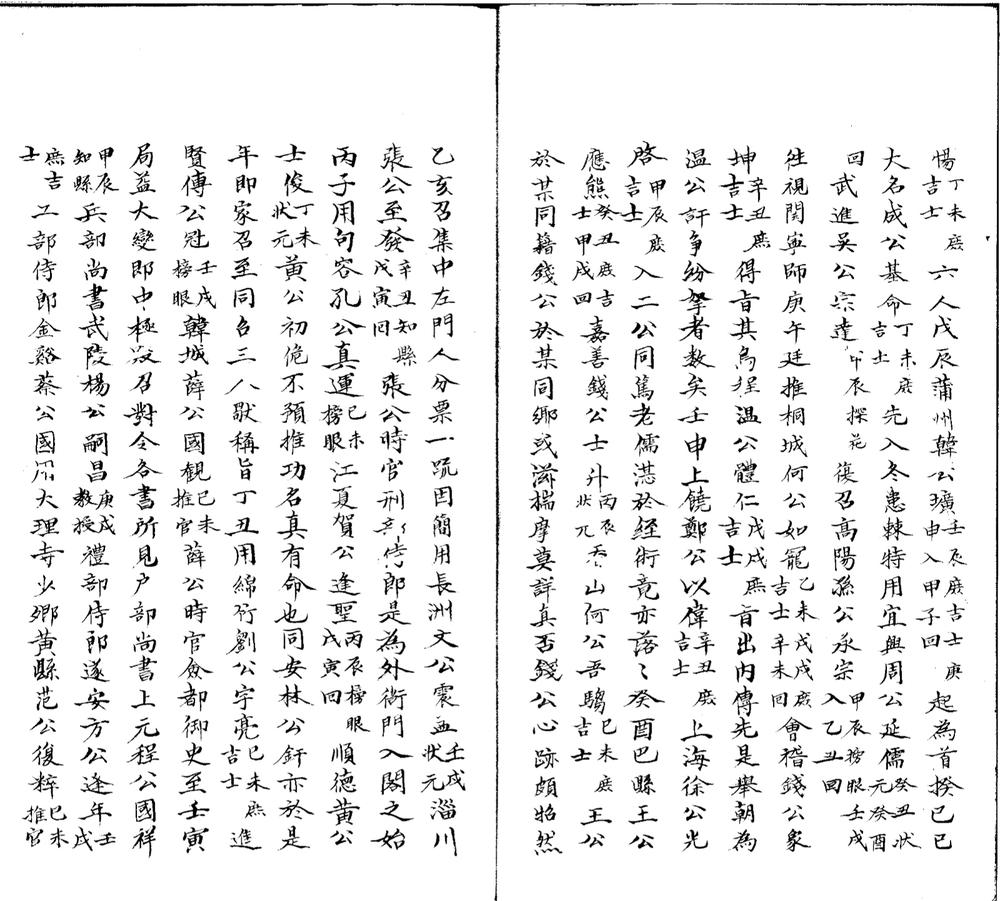 惕丁未庶吉士六人戊辰蒲州韓公壙壬辰庶吉士庚申入甲子回起為首揆己巳
大名成公基命丁未庶吉士先入冬患棘特用宜興周公延儒癸丑狀元癸酉
回武進吳公宗達甲辰探花復召高陽孫公承宗甲辰榜眼壬戌入乙丑回
往視関寧師庚午廷推桐城何公如寵乙未戊戌庶吉士辛未回會稽錢公象
坤辛丑庶吉士得旨其烏程溫公體仁戊戌庶吉士旨出内傳先是舉朝為
溫公訐争紛拏者数矣壬申上饒鄭公以偉辛丑庶吉士上海徐公光
啓甲辰庶吉士入二公同篤老儒湛於経術竟亦落〻癸酉巴縣王公
應熊癸丑庶吉士甲戌回嘉善錢公士升丙辰狀元香山何公吾騶己未庶吉士王公
於某同籍錢公於某同鄉或滋揣摩莫詳真否錢公心跡頗昭然
乙亥召集中左門人分票一疏因簡用長洲文公震孟壬戌狀元淄川
張公至發辛丑知縣戊寅回張公時官刑部侍郎是為外衙門入閣之始
丙子用句容孔公真運己未榜眼江夏賀公逢聖丙辰榜眼戊寅回順德黃公
士俊丁未狀元黃公初俛不預推功名真有命也同安林公釬亦於是
年即家召至同召三人獣稱旨丁丑用綿竹劉公宇亮己未庶吉士進
賢傅公冠壬戌榜眼韓城薛公國観己未推官薛公時官僉都御史至壬寅
局益大變即中極殿召對令各書所見户部尚書上元程公國祥
甲辰知縣兵部尚書武陵楊公嗣昌庚戌教授禮部侍郎遂安方公逢年壬戌
庶吉士工部侍郎金谿蔡公國用大理寺少卿黃縣范公復粹己未推官